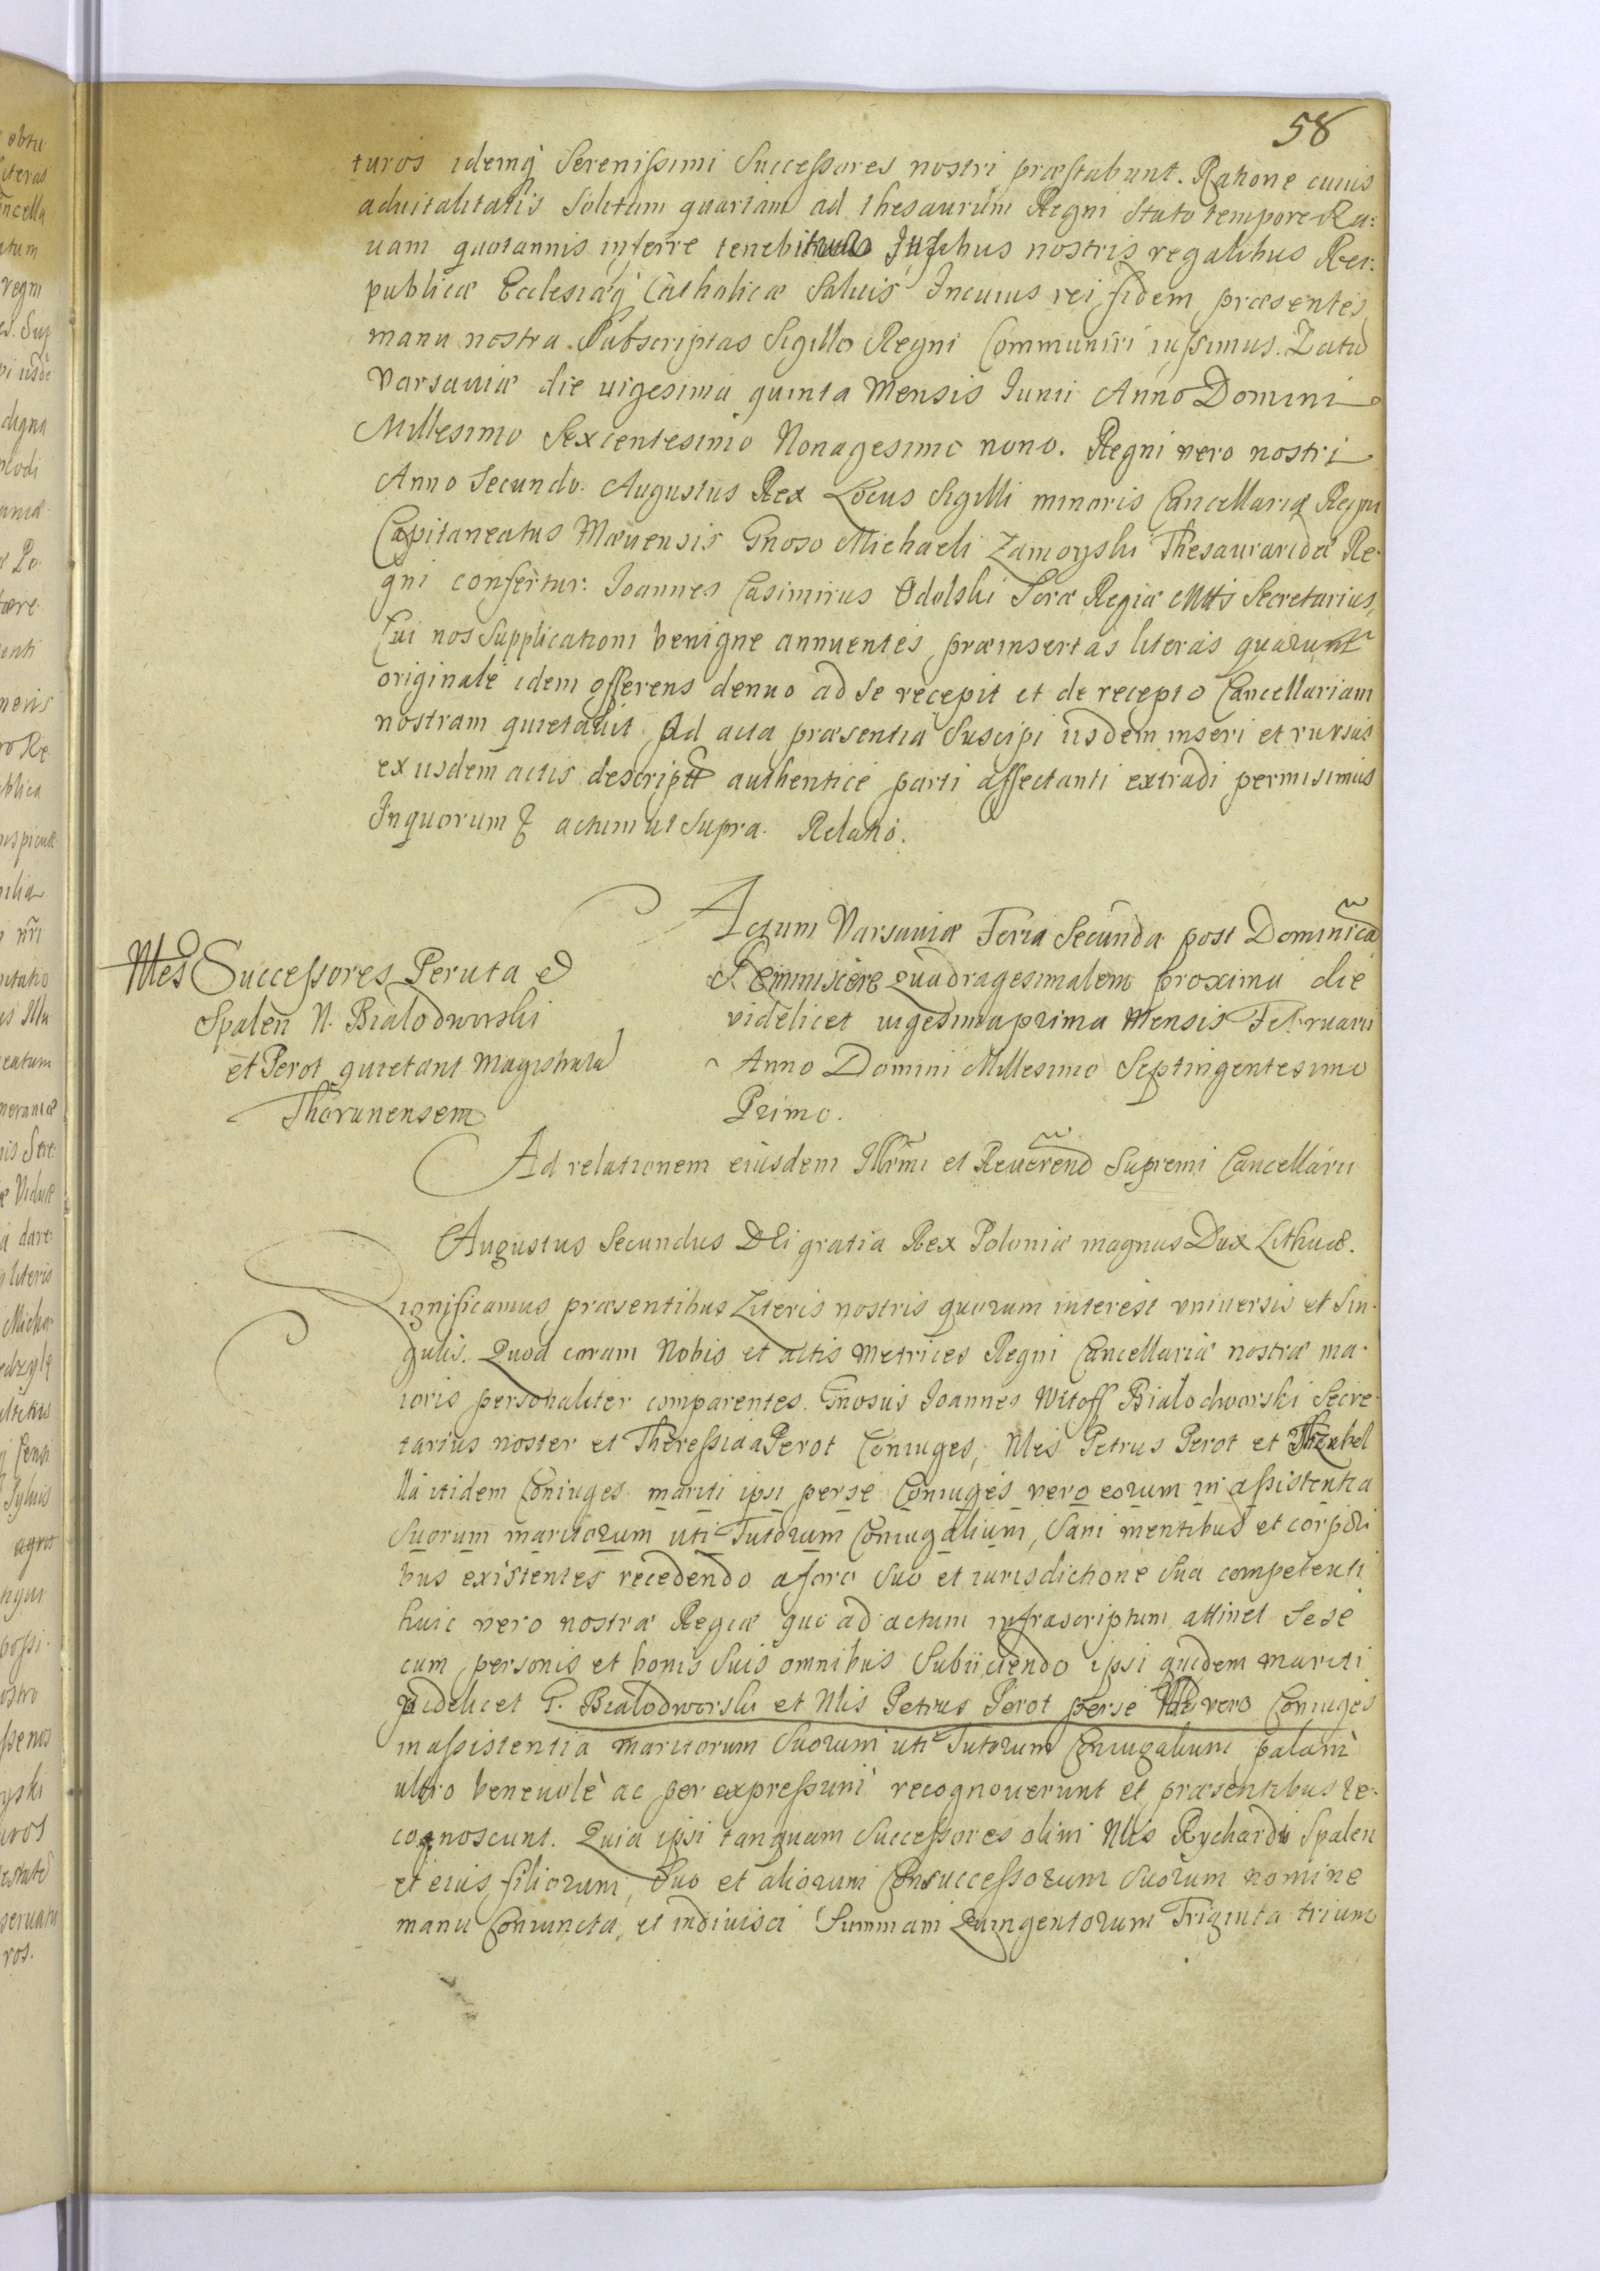 58
turos idemq Serenissimi Successores nostri præstabunt. Ratione cuius
aduitalitatis Solitam quartam ad thesaurum Regni stato tempore Ra:
uam quotannis inferre tenebitur Juribus nostris regalibus Rei:
publicæ Eclesiæq Catholicæ Saluis Incuius rei fidem præsentes
manu nostra Subscriptas Sigillo Regni Communiri iussimus. Datũ
Varsauiæ die uigesima quinta Mensis Junii Anno Domini
Millesimo Sexcentesimo Nonagesimo nono. Regni vero nostri
Anno Secundo. Augustus Rex Locus Sigilli minoris Cancellariæ Regni
Capitaneatus Mæuensis Gnoso Michaeli Zamoyski Thesauraridæ Re-
gni confertur. Joannes Casimirus Odolski Sacræ Regiæ Mttis Secretarius,
Cui nos Supplicationi benigne annuentes præinsertas literas quarum
originale idem offerens denuo ad se recepit et de recepto Cancellariam
nostram quietauit Ad acta præsentia Suscipi iisdem inseri et rursus
ex iisdem actis descriptas authentice parti affectanti extradi permisimus
Inquorum actum ut supra. Relatio.
Actum Varsauiæ Feria Secunda post Dominicã
Reminiscere Quadragesimalem proxima die
videlicet uigesimaprima Mensis Februarii
Anno Domini Millesimo Septingentesimo
Primo.
Successores Peruta
Spalen N. Bialodworski
et Perot quietant Magistratũ
Thorunensem
Ad relationem eiusdem Illrmi et Reuerend Supremi Cancellarii
Augustus Secundus DEi gratia Rex Poloniæ magnus Dux Lithuæ.
Significamus præsentibus Literis nostris quorum interest vniuersis et Sin-
gulis. Quod coram Nobis et actis Metrices Regni Cancellariæ nostræ ma-
ioris personaliter comparentes. Gnosus Joannes Witoff Bialodworski Secre-
tarius noster et Theressia a Perot Coniuges, Nlis Petrus Perot et
itidem Coniuges mariti ipsi perse Coniuges vero eorum in assistentia
Suorum maritorum uti Tutorum Coniugalium, Sani mentibus et corpori
bus existentes recedendo aforo Suo et iurisdictione Sua competenti
huic vero nostræ Regiæ quo ad actum infrascriptum attinet Sese
cum personis et bonis Suis omnibus Subiiciendo ipsi quidem mariti
videlicet G. Bialodworski et Nlis Petrus Perot perse vero Coniuges
in assistentia maritorum Suorum uti Tutorum Coniugalium palam
ultro beneuole ac per expressum recognouerunt et præsentibus re-
cognoscunt. Quia ipsi tanquam Successores olim Nlis Rychardi Spalen
et eius filiorum, Suo et aliorum Consuccessorum Suorum nomine
manu Coniuncta, et indiuisa Summam Quingentorum Triginta trium